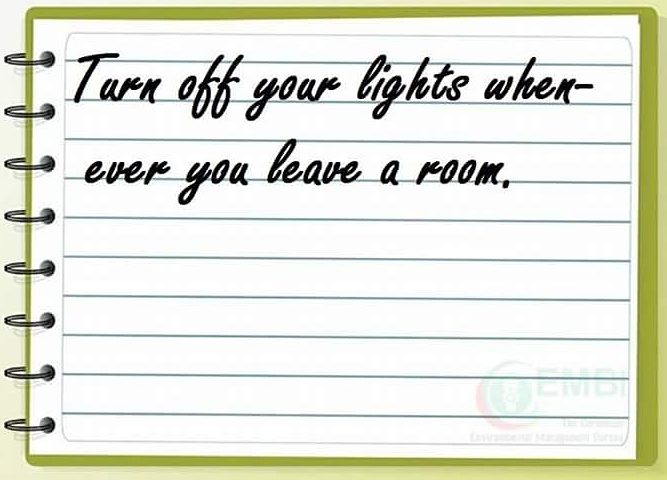 Turn off your lights when-
ever you leave a room.
EMBI
Environmental Management Bureau